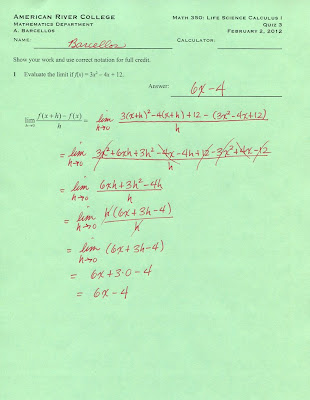 AMERICAN RIVER COLLEGE
MATHEMATICS DEPARTMENT
A. BARCELLOS
MATH 350: LIFE SCIENCE CALCULUS I
QUIZ 3
FEBRUARY 2, 2012
NAME: Barcellos CALCULATOR:
Show your work and use correct notation for full credit.
1 Evaluate the limit if f(x) = 3x² – 4x + 12.
Answer: 6x – 4
lim h→0 (f(x + h) – f(x))/h = lim h→0 (3(x+h)² – 4(x+h) + 12 – (3x² – 4x + 12))/h
= lim h→0 (3x² + 6xh + 3h² – 4x – 4h + 12 – 3x² + 4x – 12)/h
= lim h→0 (6xh + 3h² – 4h)/h
= lim h→0 h(6x + 3h – 4)/h
= lim h→0 (6x + 3h – 4)
= 6x + 3·0 – 4
= 6x – 4